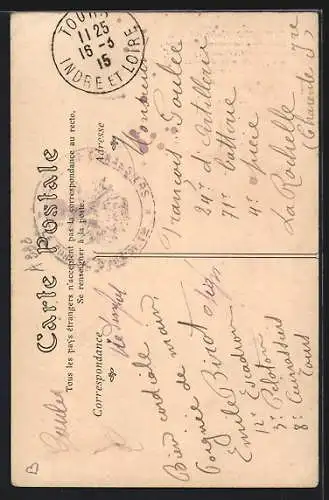 TOURS
11 25
16-3
15
INDRE ET LOIRE
Carte Postale
Tous les pays étrangers n'acceptent pas la correspondance au recto.
Se renseigner à la poste.
Correspondance
Adresse
Bien cordiale main
Poignée de
Emile Binot
12e Escadron
3e Peloton
8e Cuirassiers
Tours
Monsieur
François
24e d'Artillerie
71e batterie
4e pièce
La Rochelle
(Charente Ire
B